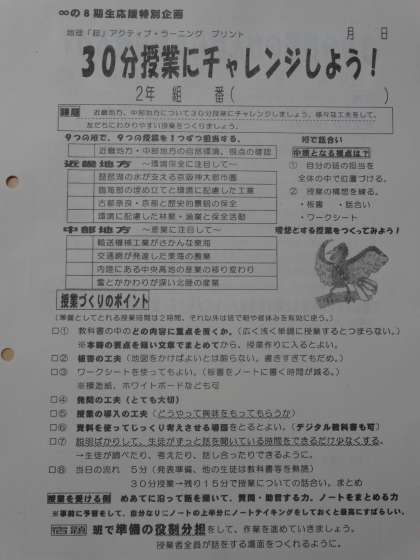 ∞の8期生応援特別企画
地理「超」アクティブ・ラーニング プリント 月 日
30分授業にチャレンジしよう！
2年 組 番( )
課題 近畿地方、中部地方について30分授業にチャレンジしましょう。様々な工夫をして、
友だちにわかりやすい授業をつくりましょう。
9つの班で、9つの授業を1つずつ担当する。
近畿地方・中部地方の自然環境、視点の確認
近畿地方 ～環境保全に注目して～
琵琶湖の水が支える京阪神大都市圏
臨海部の埋め立てと環境に配慮した工業
古都奈良・京都と歴史的景観の保全
環境に配慮した林業・漁業と保全活動
中部地方 ～産業に注目して～
輸送機械工業がさかんな東海
交通網が発達した東海の農業
内陸にある中央高地の産業の移り変わり
雪とかかわりが深い北陸の産業
班で話合い
中核となる視点は？
① 自分の班の担当を
全体の中で位置づける。
② 授業の構想を練る。
・板書 ・話合い
・ワークシート
理想とする授業をつくってみよう！
授業づくりのポイント
(準備としてとれる授業時間は2時間。それ以外は班で朝や昼休みを有効に使う。)
□① 教科書の中のどの内容に重点を置くか。(広く浅く単調に授業するとつまらない。)
※本時の要点を短い文章でまとめてから、授業作りに入るとよい。
□② 板書の工夫(地図をかけばよいとは限らない。書きすぎてもだめ。)
□③ ワークシートを使ってもよい。(板書をノートに書く時間が減る。)
※模造紙、ホワイトボードなども可
□④ 発問の工夫(とても大切)
□⑤ 授業の導入の工夫(どうやって興味をもってもらうか)
□⑥ 資料を使ってじっくり考えさせる場面をとるとよい。(デジタル教科書も可)
□⑦ 説明ばかりして、生徒がずっと話を聞いている時間をできるだけ少なくする。
→生徒が調べたり、考えたり、話し合ったりできるように。
□⑧ 当日の流れ 5分(発表準備、他の生徒は教科書等を熟読)
30分授業→残り15分で授業についての話合い、まとめ
授業を受ける側 めあてに沿って話を聞いて、質問・助言する力、ノートをまとめる力
※事前に予習をして、自分なりにノートの上半分にノートテイキングをしておくと最高にすばらしい。
宿題 班で準備の役割分担をして、作業を進めていきましょう。
授業者全員が話をする場面をつくれるように。